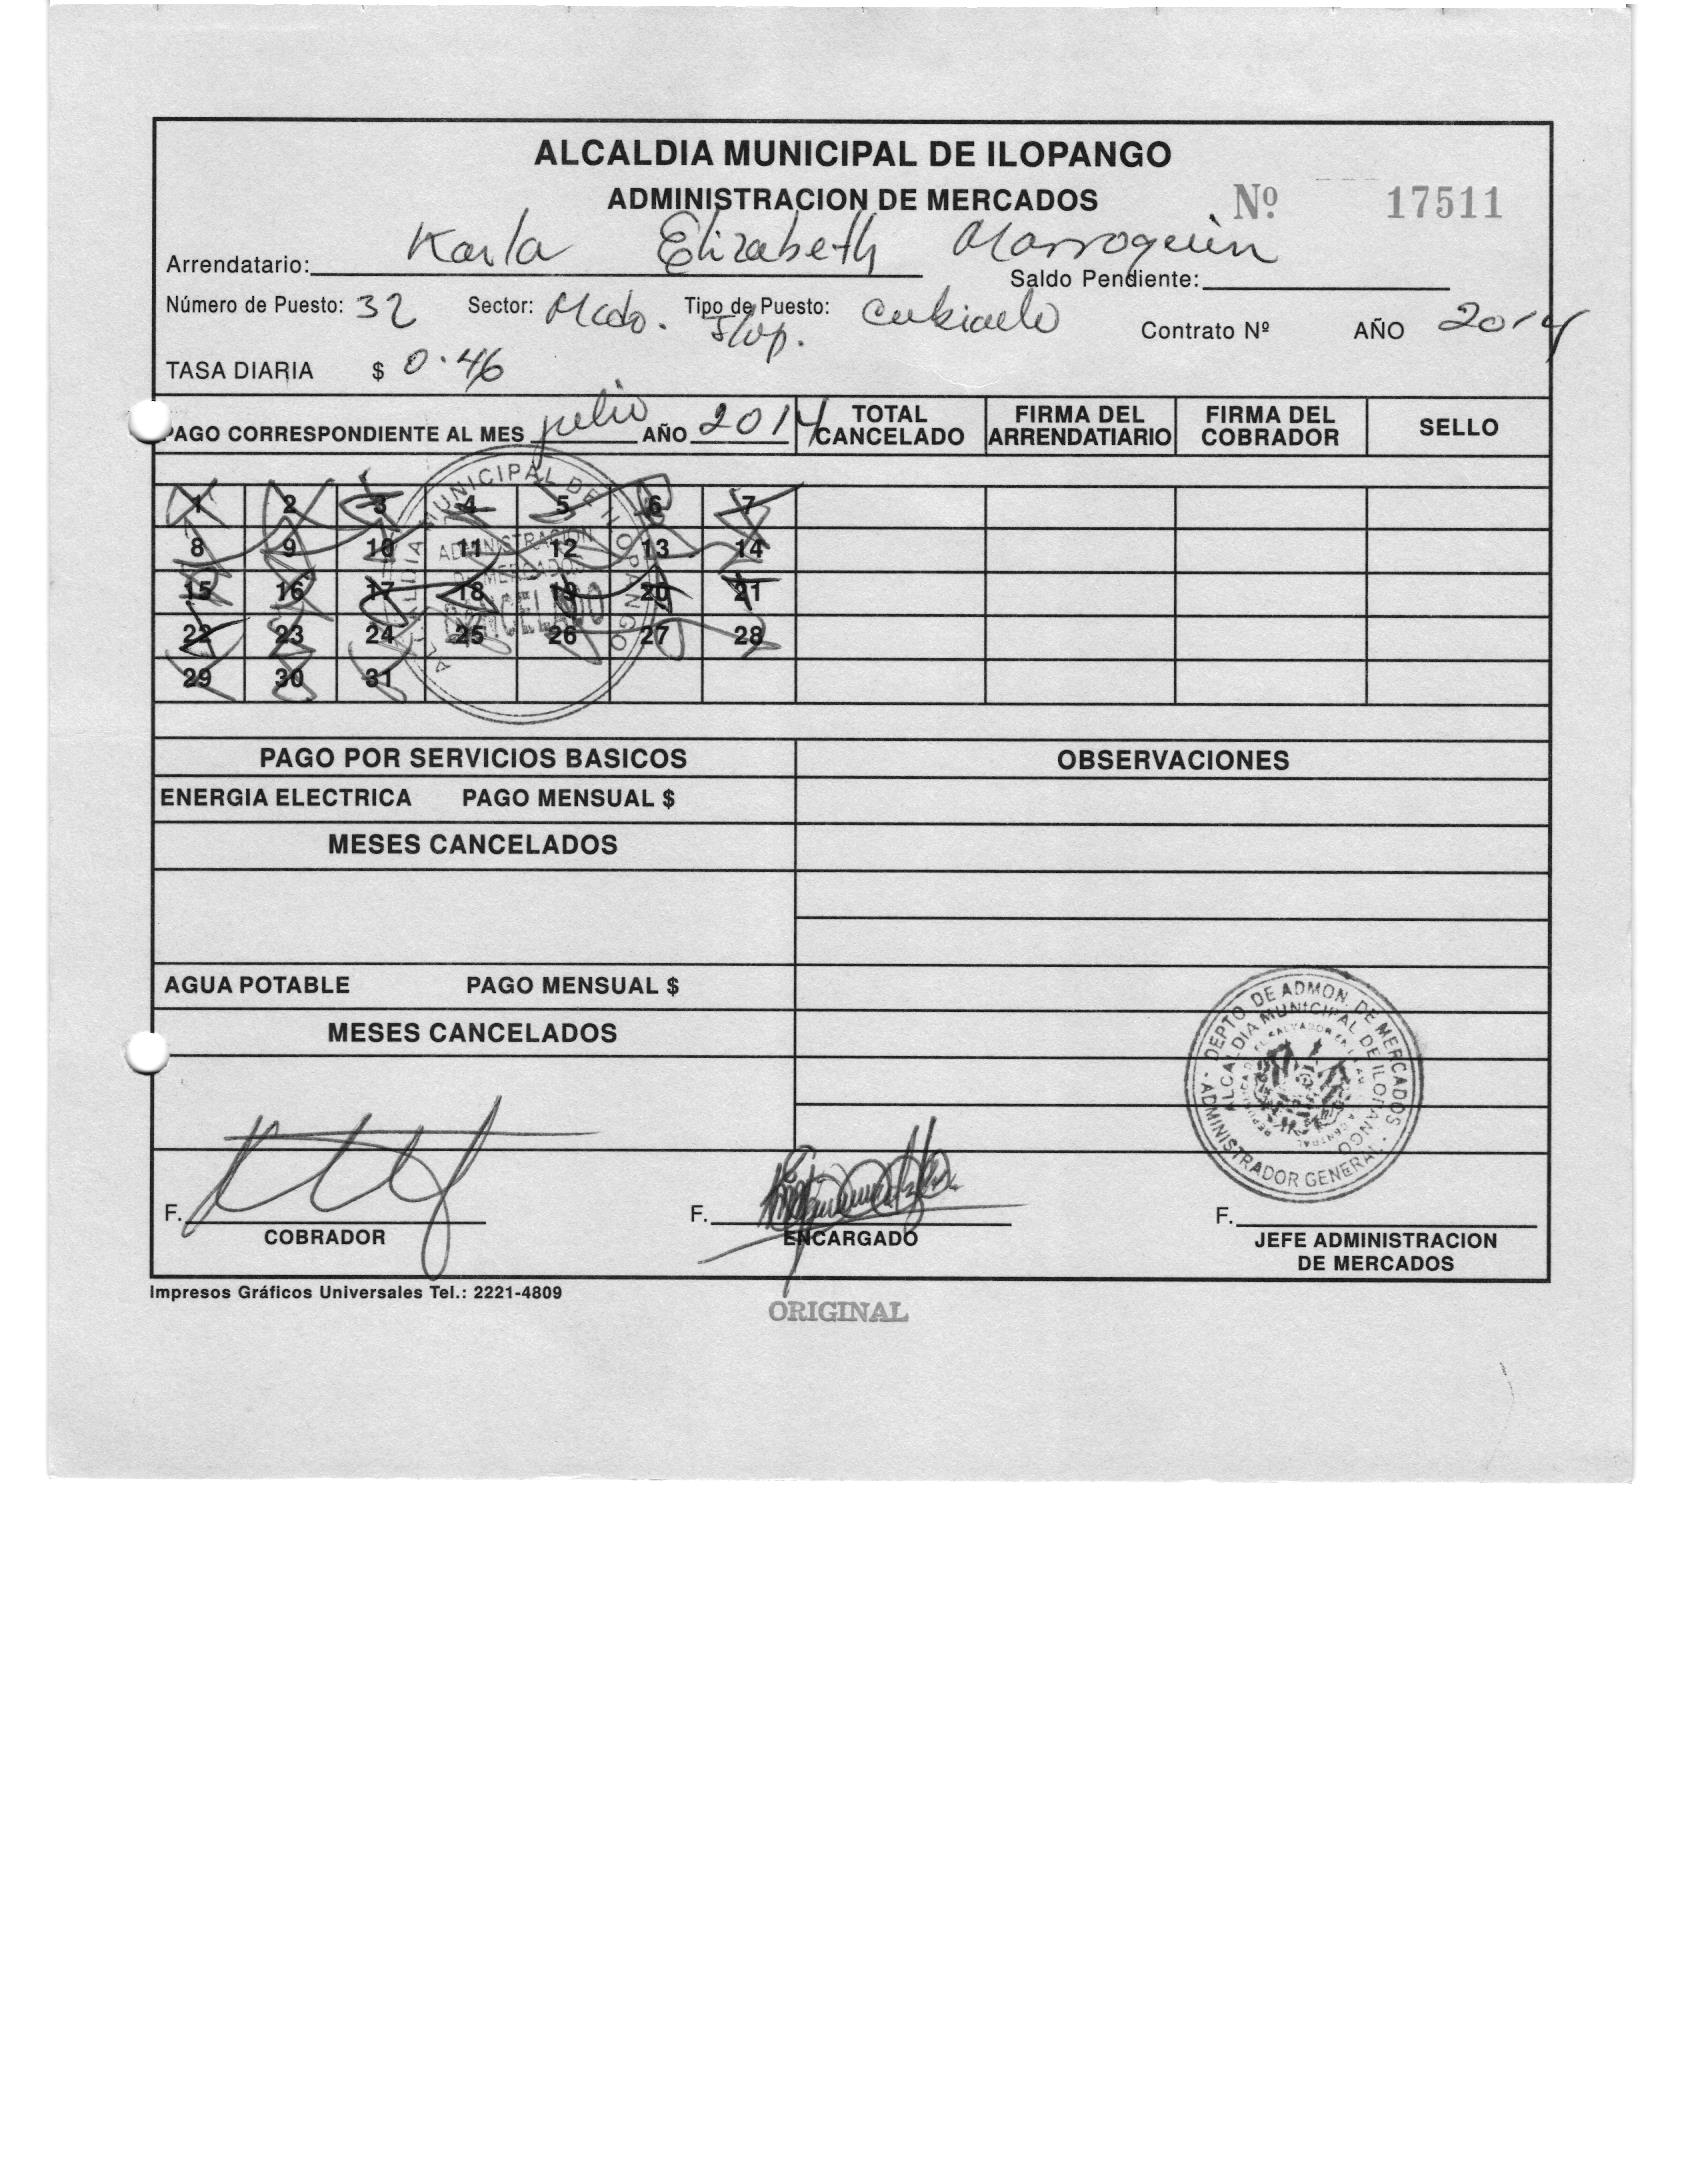 ALCALDIA MUNICIPAL DE ILOPANGO
ADMINISTRACION DE MERCADOS Nº 17511
Arrendatario: Karla Elizabeth Marroquin
Saldo Pendiente:
Número de Puesto: 32 Sector: Mcdo. Ilop. Tipo de Puesto: Contrato Nº AÑO 2014
TASA DIARIA $ 0.46
PAGO CORRESPONDIENTE AL MES julio AÑO 2014 TOTAL CANCELADO FIRMA DEL ARRENDATIARIO FIRMA DEL COBRADOR SELLO
1 2 3 4 5 6 7
8 9 10 11 12 13 14
15 16 17 18 19 20 21
22 23 24 25 26 27 28
29 30 31
ALCALDIA MUNICIPAL DE ILOPANGO
ADMINISTRACION
DE MERCADOS
CANCELADO
PAGO POR SERVICIOS BASICOS OBSERVACIONES
ENERGIA ELECTRICA PAGO MENSUAL $
MESES CANCELADOS
AGUA POTABLE PAGO MENSUAL $
MESES CANCELADOS
DEPTO. DE ADMON. DE MERCADOS
ALCALDIA MUNICIPAL DE ILOPANGO
ADMINISTRADOR GENERAL
F. F. F.
COBRADOR ENCARGADO JEFE ADMINISTRACION
DE MERCADOS
Impresos Gráficos Universales Tel.: 2221-4809
ORIGINAL